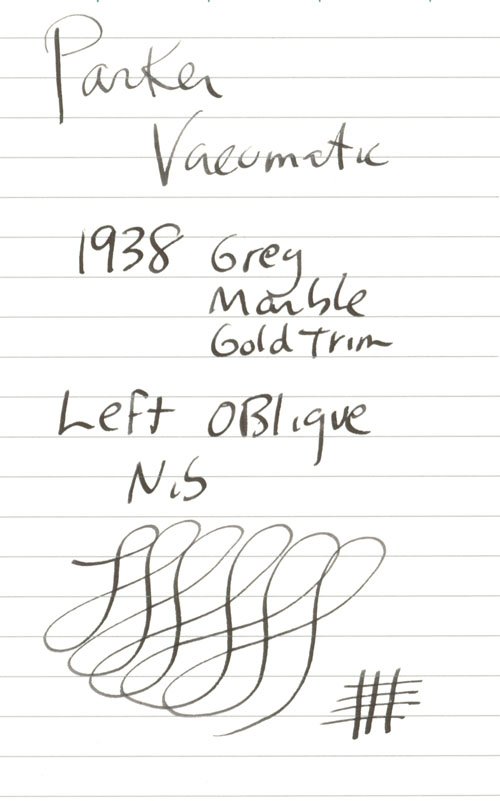 Parker
Vacumatic
1938 Grey
Marble
Gold Trim
Left OBlique
Nib